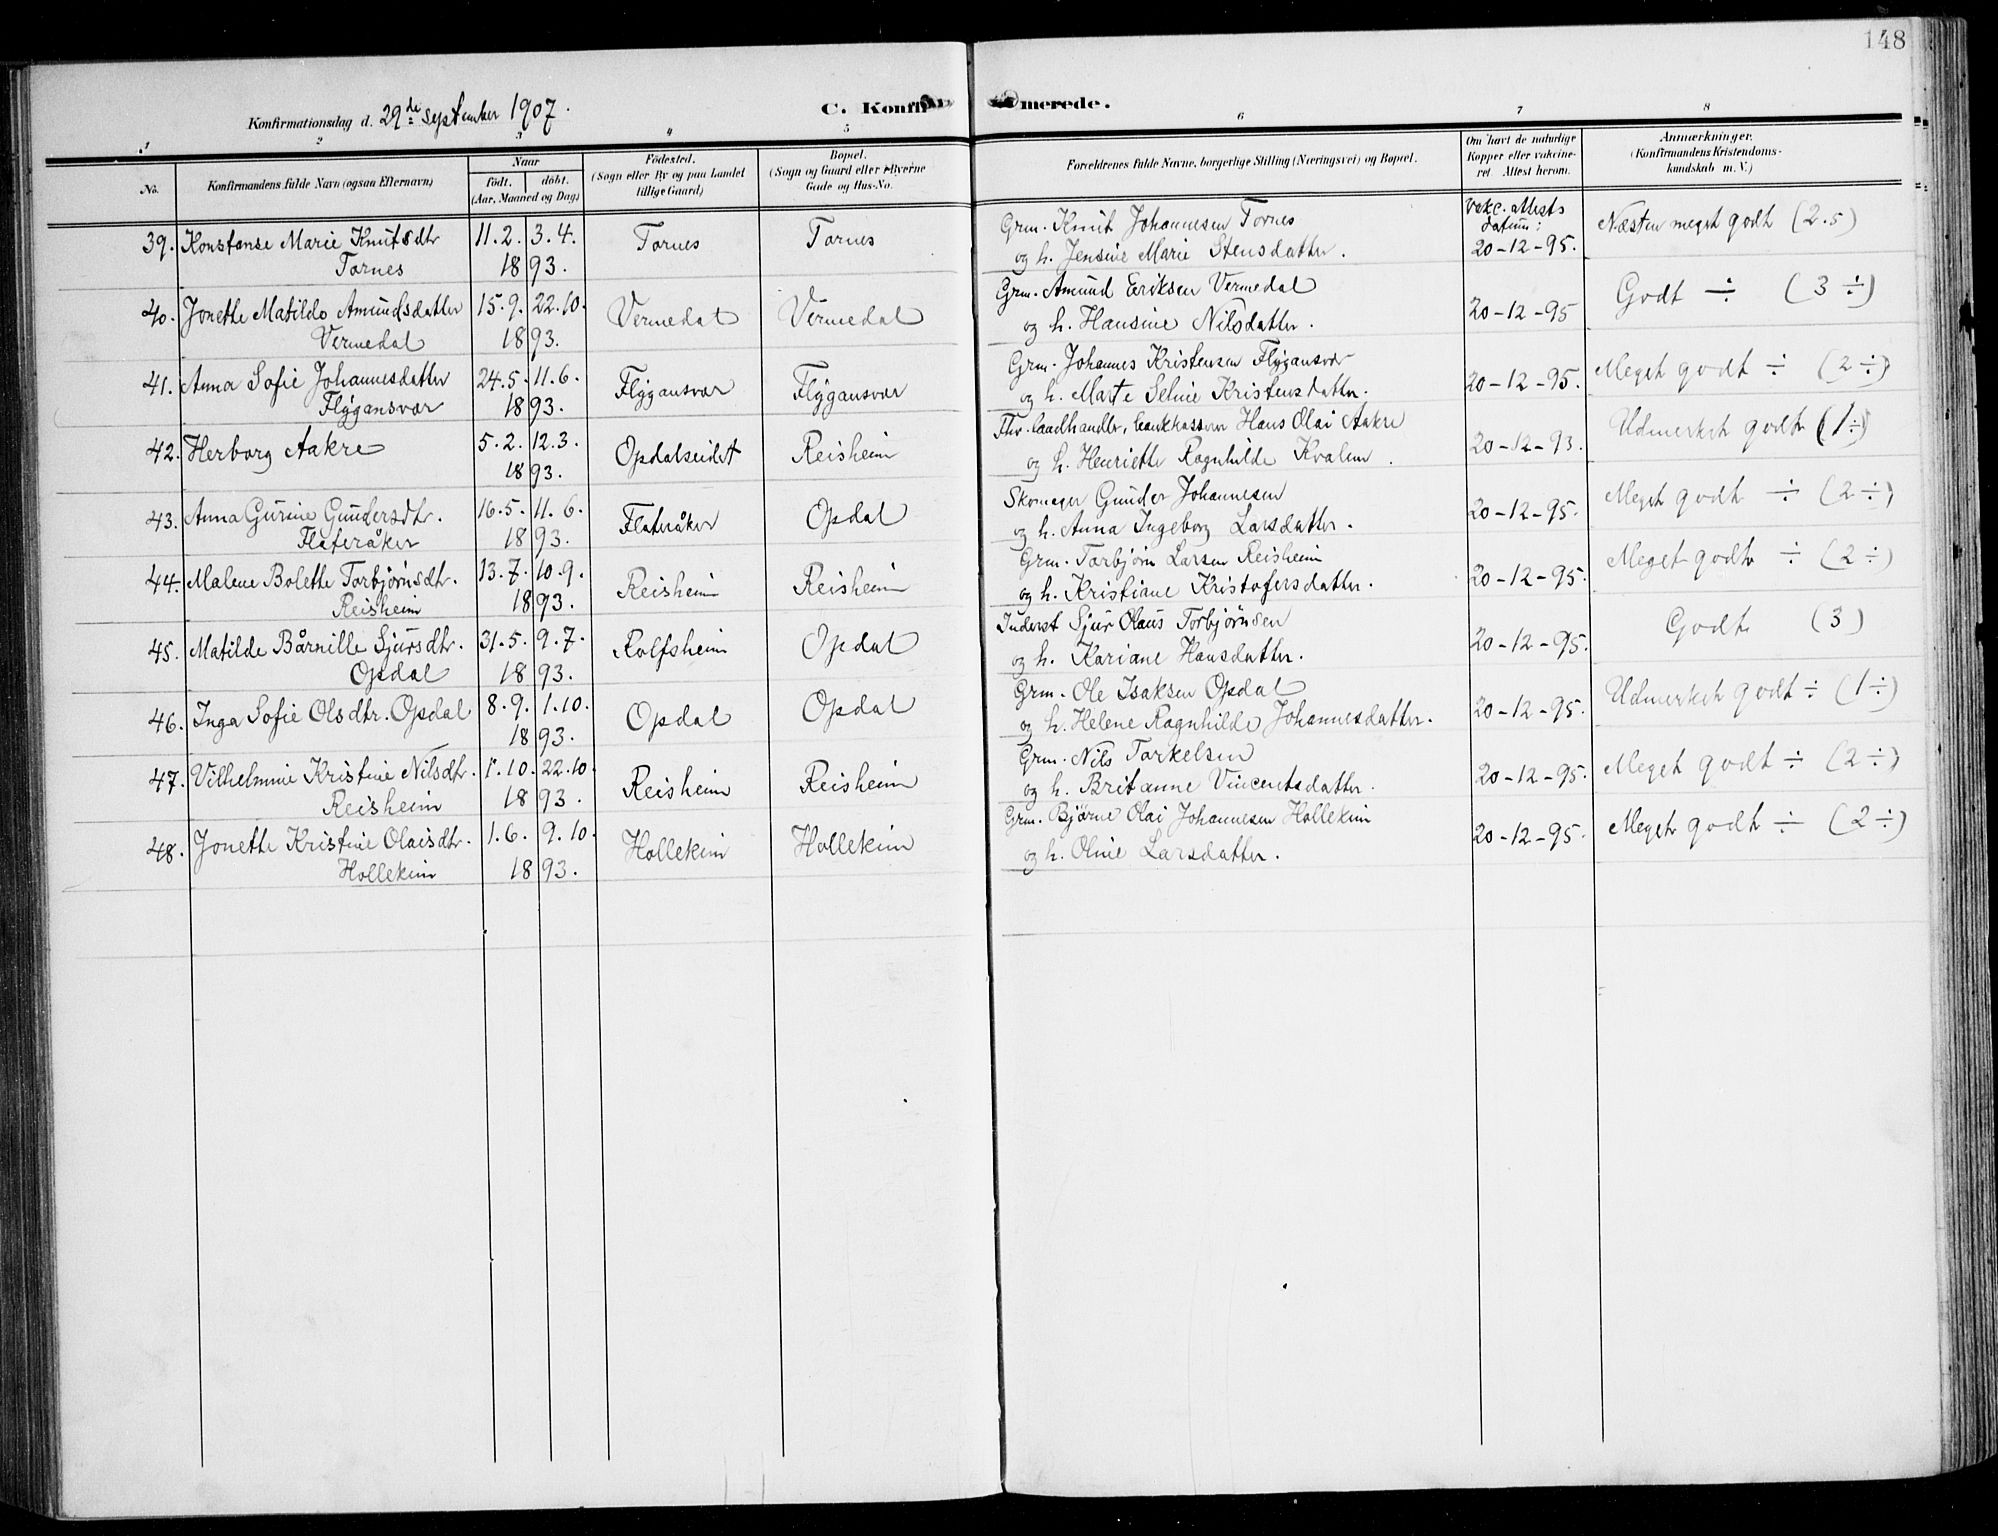 148
Konfirmationsdag d. 29de september 1907.
C. Konfir merede.
1 2 3 4 5 6 7 8
No.
Konfirmandens fulde Navn (ogsaa Efternavn)
Naar
født. døbt.
(Aar, Maaned og Dag)
Fødested.
(Sogn eller By og paa Landet
tillige Gaard)
Bopæl.
(Sogn og Gaard eller Byerne
Gade og Hus-No.
Forældrenes fulde Navne, borgerlige Stilling (Næringsvei) og Bopæl.
Om havt de naturlige
Kopper eller vakcine-
ret. Attest herom.
Anmærkninger.
(Konfirmandens Kristendoms-
kundskab m. V.)
39. Konstanse Marie Knutsdtr 11.2. 3.4. Tornes Tornes Grm. Knut Johannesen Tornes vakc. attests datum: Næsten meget godt (2.5)
Tornes 1893. og h. Jensine Marie Stensdatter. 20-12-95.
40. Jonette Matilde Amundsdatter 15.9. 22.10. Vermedal Vermedal Grm. Amund Eriksen Vermedal 20-12-95 Godt ÷ (3 ÷)
Vermedal 1893. og h. Hansine Nilsdatter.
41. Anna Sofie Johannesdatter 24.5. 11.6. Flygansvær Flygansvær Grm. Johannes Kristensen Flygansvær 20-12-95. Meget godt ÷ (2 ÷)
Flygansvær 1893. og h. Marte Seline Kristensdatter.
42. Herborg Aakre 5.2. 12.3. Opdalseidet Reisheim Fhv. landhandler, bankkasserer Hans Olai Aakre 20-12-93. Udmerket godt (1 ÷)
1893. og h. Henriette Ragnhilde Kvalen.
43. Anna Gurine Gundersdtr. 16.5. 11.6. Flateråker Opdal Skomager Gunder Johannesen 20-12-95. Meget godt ÷ (2 ÷)
Flateråker 1893. og h. Anna Ingeborg Larsdatter.
44. Malene Bolette Torbjørnsdtr. 13.7. 10.9. Reisheim Reisheim Grm. Torbjørn Larsen Reisheim 20-12-95. Meget godt ÷ (2 ÷)
Reisheim 1893. og h. Kristiane Kristofersdatter.
45. Matilde Bårnille Sjursdtr. 31.5. 9.7. Rolfsheim Opdal Inderst Sjur Olaus Torbjørnsen 20-12-95. Godt (3)
Opdal 1893. og h. Kariane Hansdatter.
46. Inga Sofie Olsdtr. Opdal 8.9. 1.10. Opdal Opdal Grm. Ole Isaksen Opdal 20-12-95. Udmerket godt ÷ (1 ÷)
1893. og h. Helene Ragnhilde Johannesdatter.
47. Vilhelmine Kristine Nilsdtr. 1.10. 22.10. Reisheim Reisheim Grm. Nils Torkelsen 20-12-95. Meget godt ÷ (2 ÷)
Reisheim 1893. og h. Britanne Vincentsdatter.
48. Jonette Kristine Olaisdtr. 1.6. 9.10. Hollekim Hollekim Grm. Bjørne Olai Johannesen Hollekim 20-12-95. Meget godt ÷ (2 ÷)
Hollekim 1893. og h. Oline Larsdatter.